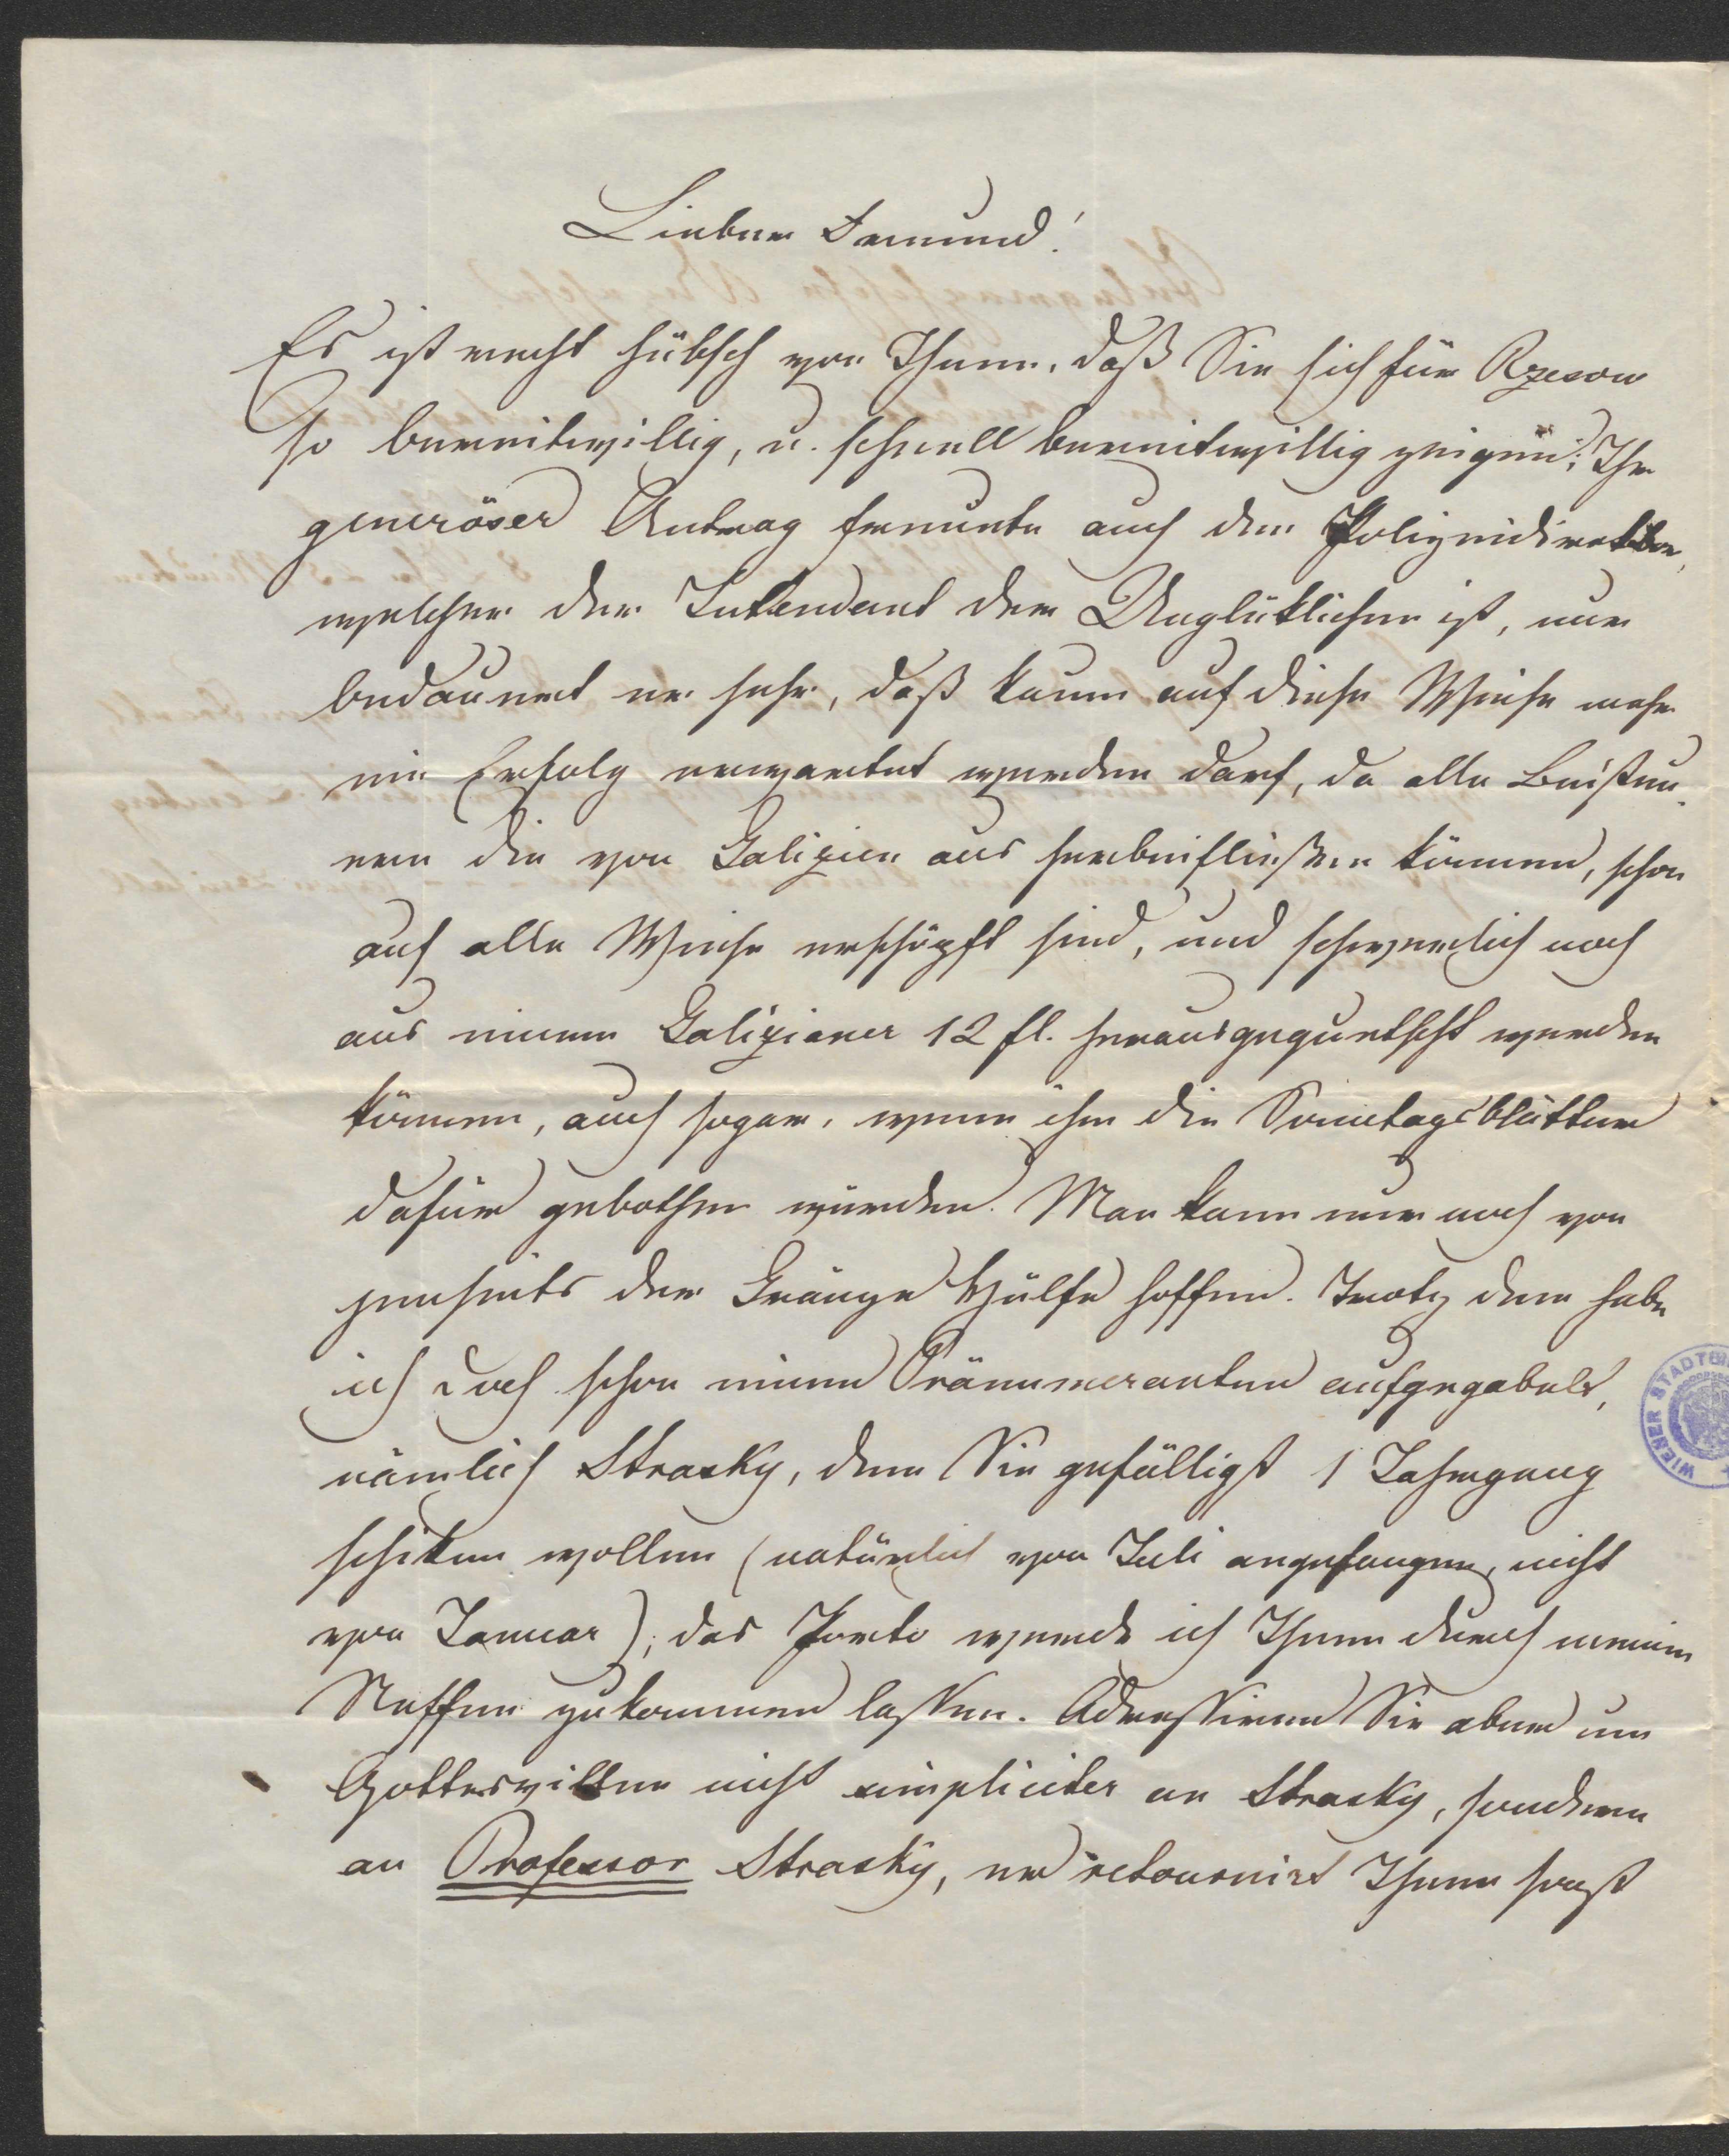 Lieber Freund!
Es ist recht hübsch von Ihnen, daß Sie sich für Rzesow
so bereitwillig, u. schnell bereitwillig zeigen; Ihr
generöser Antrag freuete auch den Polizeidirektor,
welcher der Intendant der Unglüklichen ist, nur
bedauert er sehr, daß kaum auf diese Weise mehr
ein Erfolg erwartet werden darf, da alle Beisteu-
ern die von Galizien aus herbeifließen können, schon
auf alle Weise erschöpft sind, und schwerlich noch
aus einem Galizianer 12 fl. herausgequetscht werden
können, auch sogar, wenn ihm die Sonntagsblätter
dafür gebothen würden. Man kann nur noch von
jenseits der Gränze Hülfe hoffen. Trotz dem habe
ich doch schon einen Pränumeranten aufgegabelt,
nämlich Strasky, dem Sie gefälligst 1 Jahrgang
schiken wollen (natürlich von Juli angefangen, nicht
von Januar); das Porto werde ich Ihnen durch meinen
Neffen zukommen lassen. Adressiren Sie aber um
Gotteswillen nicht simpliciter an Strasky, sondern
an Professor Strasky, er retournirt Ihnen sonst
WIENER STADTBI